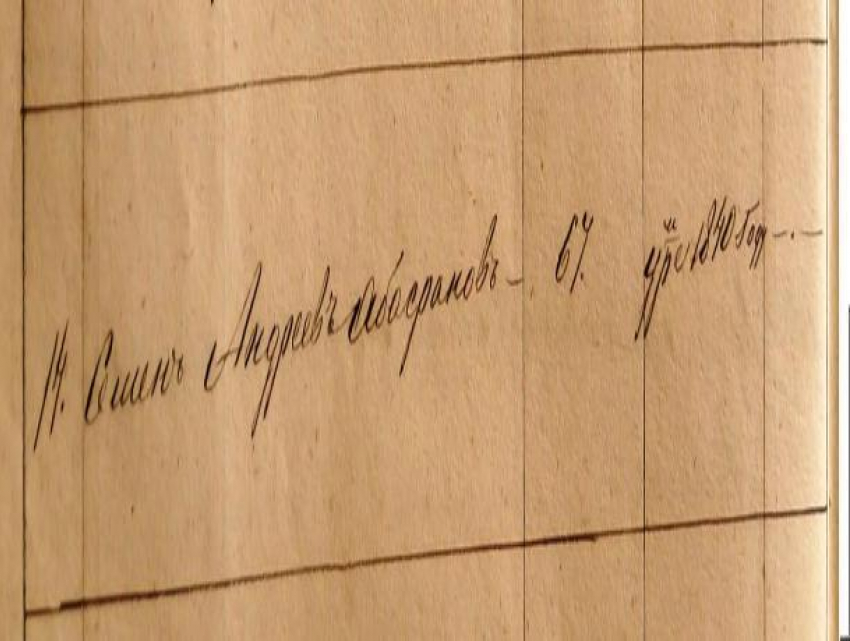 14. Семенъ Андреевъ Абосрановъ – 67. ум: въ 1840 году –.–